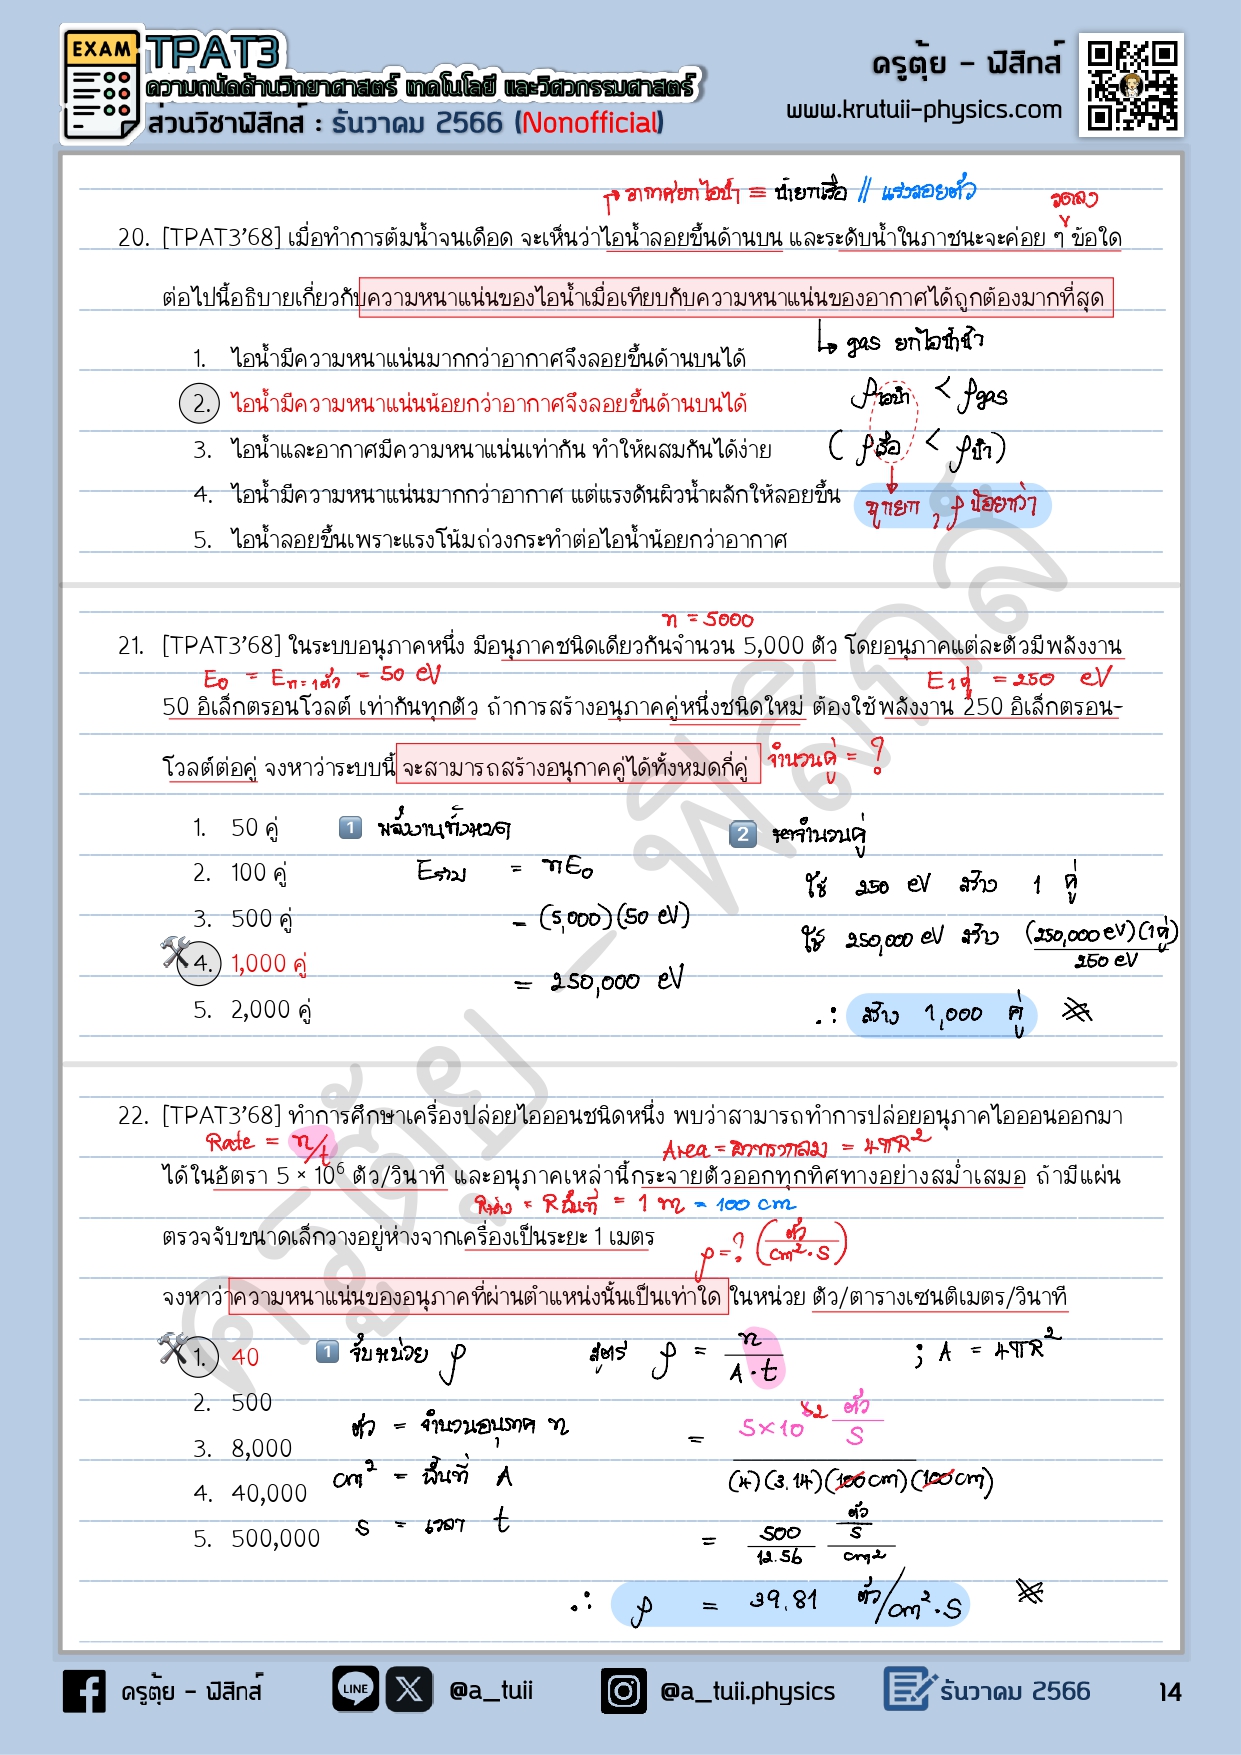 EXAM
TPAT3
ความถนัดด้านวิทยาศาสตร์ เทคโนโลยี และวิศวกรรมศาสตร์
ส่วนวิชาฟิสิกส์ : ธันวาคม 2566 (Nonofficial)
ครูตุ้ย - ฟิสิกส์
www.krutuii-physics.com
อากาศยกไอน้ำ ≡ น้ำยกเรือ // แรงลอยตัว
ลดลง
20. [TPAT3'68] เมื่อทำการต้มน้ำจนเดือด จะเห็นว่าไอน้ำลอยขึ้นด้านบน และระดับน้ำในภาชนะจะค่อย ๆ ข้อใด
ต่อไปนี้อธิบายเกี่ยวกับความหนาแน่นของไอน้ำเมื่อเทียบกับความหนาแน่นของอากาศได้ถูกต้องมากที่สุด
↳ gas ยกไอน้ำ
1. ไอน้ำมีความหนาแน่นมากกว่าอากาศจึงลอยขึ้นด้านบนได้
2. ไอน้ำมีความหนาแน่นน้อยกว่าอากาศจึงลอยขึ้นด้านบนได้
ρไอน้ำ < ρgas
3. ไอน้ำและอากาศมีความหนาแน่นเท่ากัน ทำให้ผสมกันได้ง่าย
(ρเรือ < ρน้ำ)
4. ไอน้ำมีความหนาแน่นมากกว่าอากาศ แต่แรงดันผิวน้ำผลักให้ลอยขึ้น
ถูกยก , ρ น้อยกว่า
5. ไอน้ำลอยขึ้นเพราะแรงโน้มถ่วงกระทำต่อไอน้ำน้อยกว่าอากาศ
n = 5000
21. [TPAT3'68] ในระบบอนุภาคหนึ่ง มีอนุภาคชนิดเดียวกันจำนวน 5,000 ตัว โดยอนุภาคแต่ละตัวมีพลังงาน
E₀ = Eₙ₌₁ตัว = 50 eV
E1คู่ = 250 eV
50 อิเล็กตรอนโวลต์ เท่ากันทุกตัว ถ้าการสร้างอนุภาคคู่หนึ่งชนิดใหม่ ต้องใช้พลังงาน 250 อิเล็กตรอน-
โวลต์ต่อคู่ จงหาว่าระบบนี้ จะสามารถสร้างอนุภาคคู่ได้ทั้งหมดกี่คู่ จำนวนคู่ = ?
1. 50 คู่
2. 100 คู่
3. 500 คู่
4. 1,000 คู่
5. 2,000 คู่
1 พลังงานทั้งหมด
Eรวม = nE₀
= (5,000)(50 eV)
= 250,000 eV
2 หาจำนวนคู่
ใช้ 250 eV สร้าง 1 คู่
ใช้ 250,000 eV สร้าง (250,000 eV)(1คู่)
250 eV
∴ สร้าง 1,000 คู่
22. [TPAT3'68] ทำการศึกษาเครื่องปล่อยไอออนชนิดหนึ่ง พบว่าสามารถทำการปล่อยอนุภาคไอออนออกมา
Rate = n/t
Area = ผิวทรงกลม = 4πR²
ได้ในอัตรา 5 × 10⁶ ตัว/วินาที และอนุภาคเหล่านี้กระจายตัวออกทุกทิศทางอย่างสม่ำเสมอ ถ้ามีแผ่น
Rห่าง = Rพื้นที่ = 1 m = 100 cm
ตรวจจับขนาดเล็กวางอยู่ห่างจากเครื่องเป็นระยะ 1 เมตร
ρ = ? (ตัว/cm²·s)
จงหาว่าความหนาแน่นของอนุภาคที่ผ่านตำแหน่งนั้นเป็นเท่าใด ในหน่วย ตัว/ตารางเซนติเมตร/วินาที
1. 40
2. 500
3. 8,000
4. 40,000
5. 500,000
1 จับหน่วย ρ
ตัว = จำนวนอนุภาค n
cm² = พื้นที่ A
s = เวลา t
สูตร ρ = n/A·t ; A = 4πR²
= 5×10⁶ ² ตัว/s
(4)(3.14)(100cm)(100cm)
= 500/12.56 ตัว/s/cm²
∴ ρ = 39.81 ตัว/cm²·s
ครูตุ้ย - ฟิสิกส์
ครูตุ้ย - ฟิสิกส์
LINE
@a_tuii
@a_tuii.physics
ธันวาคม 2566
14